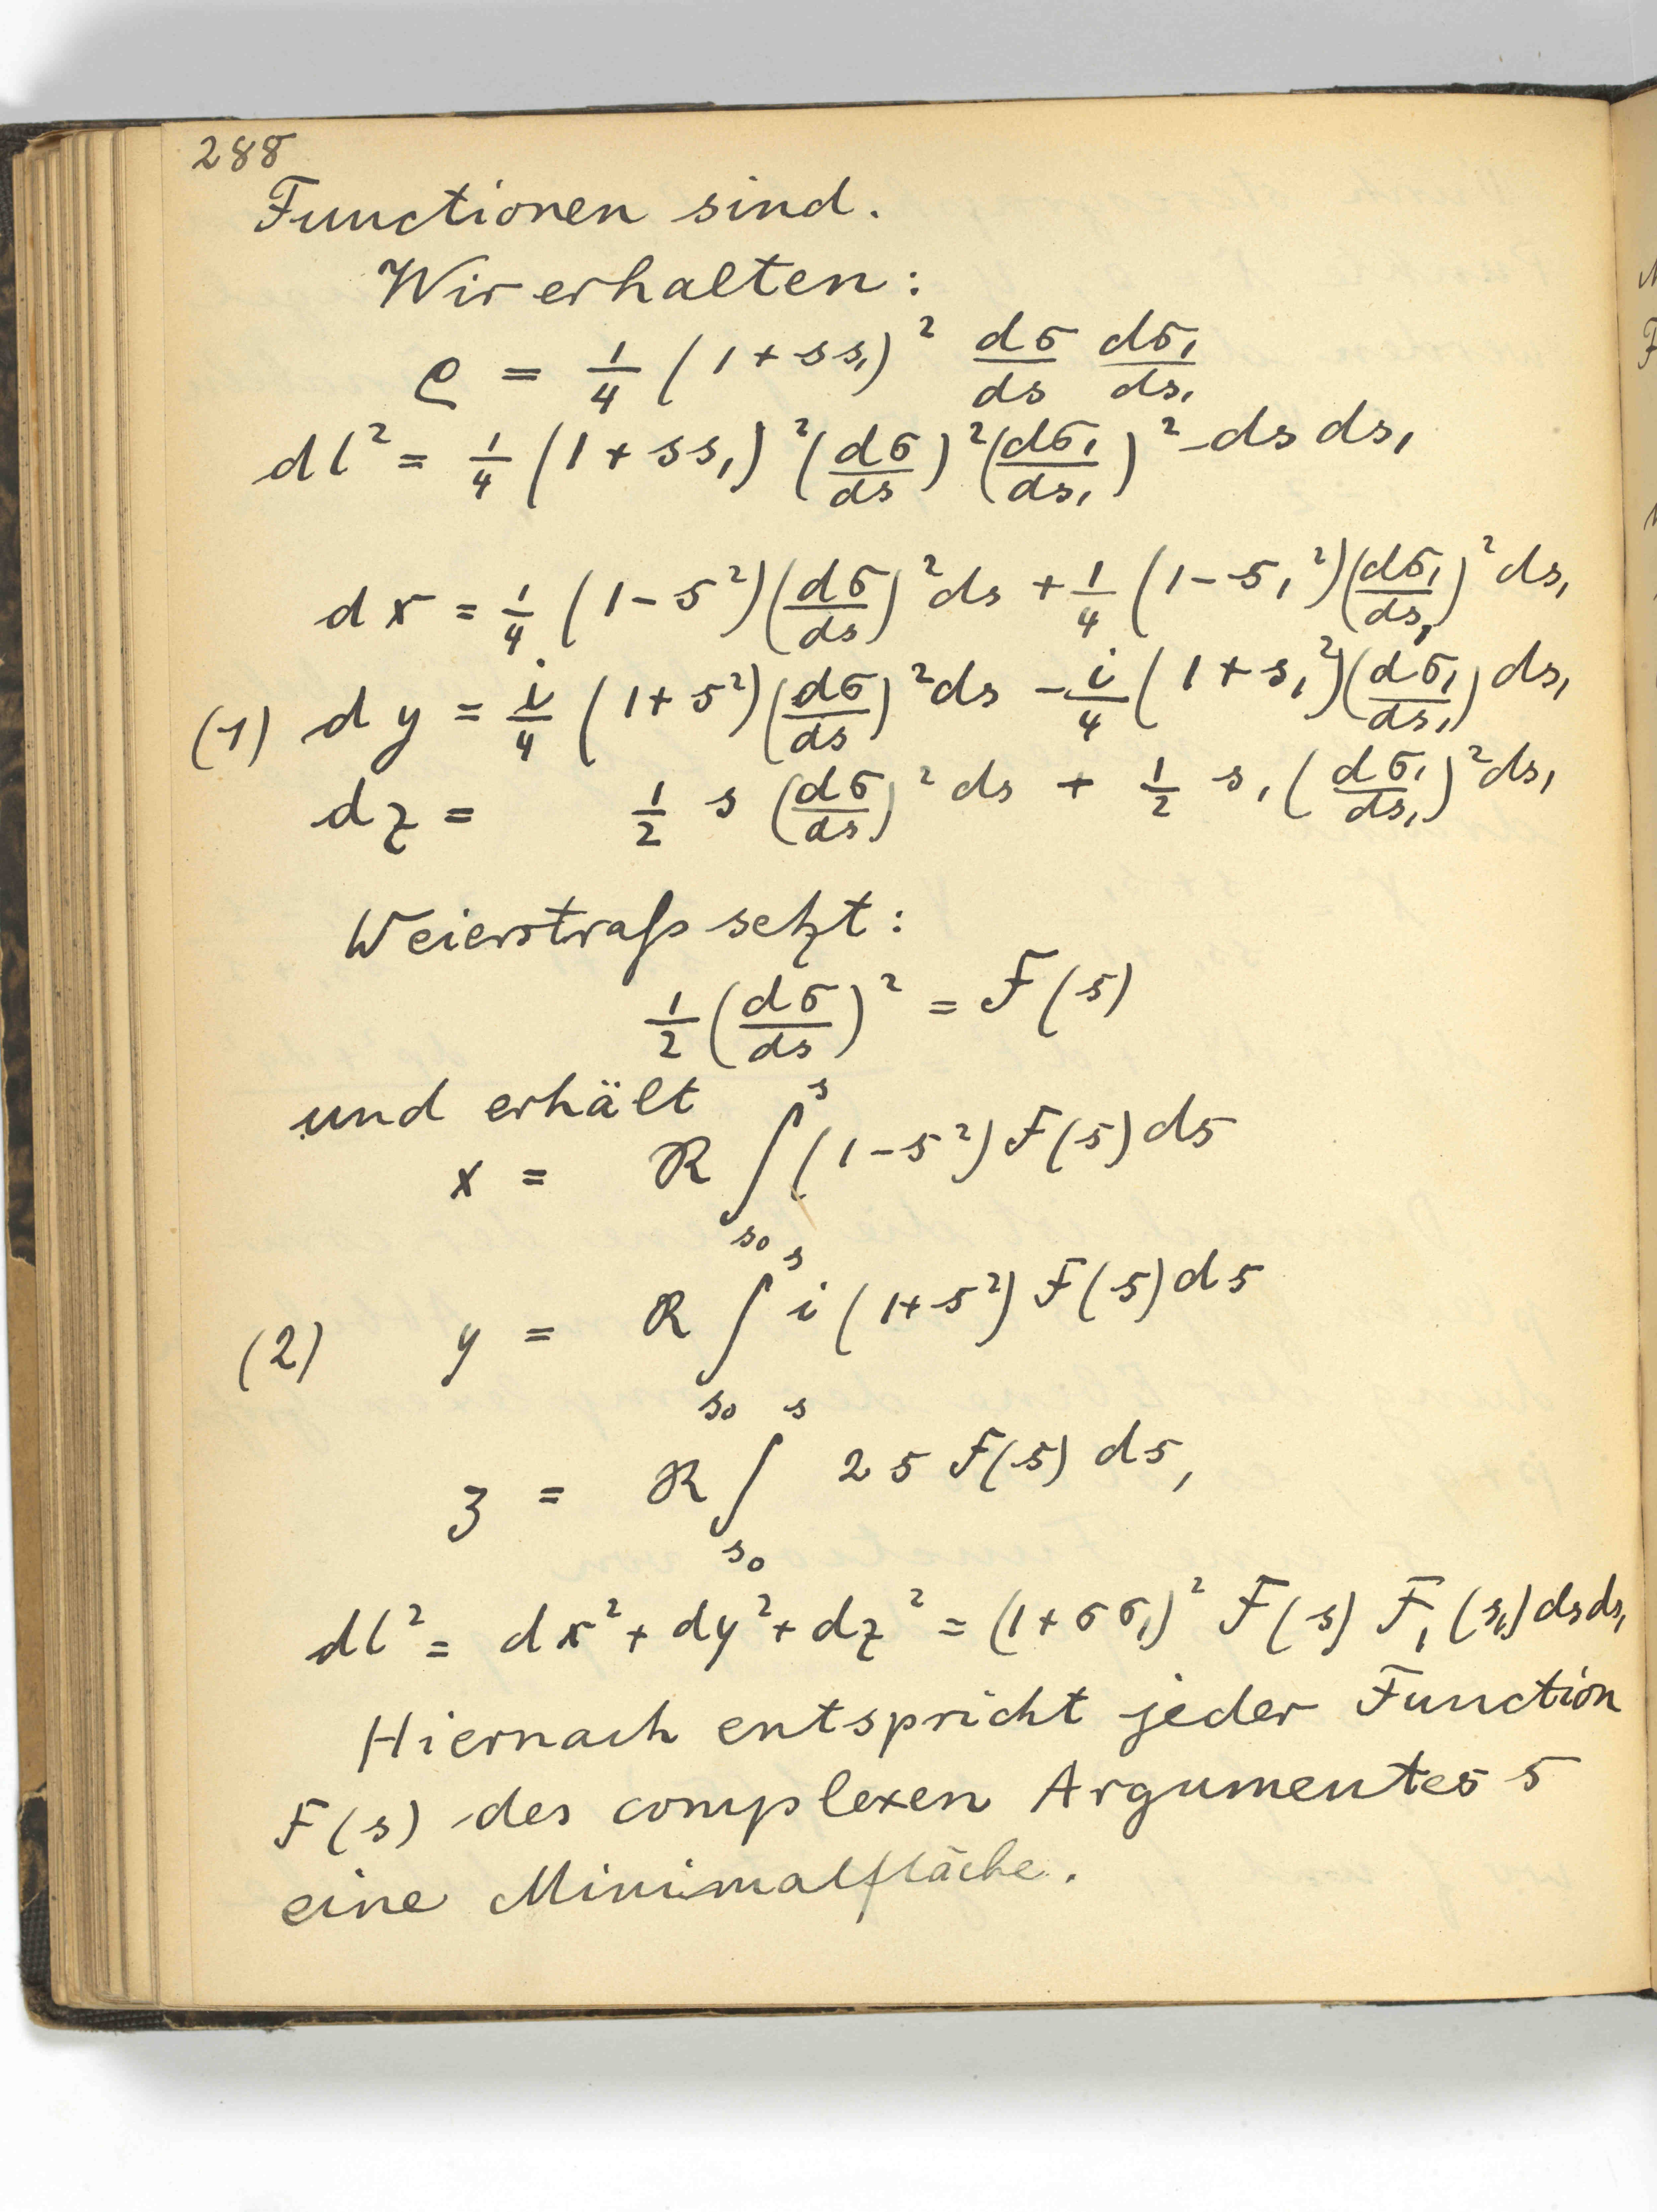 288
Functionen sind.
Wir erhalten:
ϱ = 1/4 (1 + ss₁)² dσ/ds dσ₁/ds₁
dl² = 1/4 (1 + ss₁)² (dσ/ds)² (dσ₁/ds₁)² ds ds₁
dx = 1/4 (1 - s²)(dσ/ds)² ds + 1/4 (1 - s₁²)(dσ₁/ds₁)² ds₁
(1) dy = i/4 (1 + s²)(dσ/ds)² ds - i/4 (1 + s₁²)(dσ₁/ds₁) ds₁
dz = 1/2 s (dσ/ds)² ds + 1/2 s₁ (dσ₁/ds₁)² ds₁
Weierstraß setzt:
1/2 (dσ/ds)² = F(s)
und erhält
x = ℜ ∫_{s₀}^{s} (1 - s²) F(s) ds
(2) y = ℜ ∫_{s₀}^{s} i (1 + s²) F(s) ds
z = ℜ ∫_{s₀}^{s} 2s F(s) ds,
dl² = dx² + dy² + dz² = (1 + σσ₁)² F(s) F₁(s₁) ds ds₁
Hiernach entspricht jeder Function
F(s) des complexen Argumentes s
eine Minimalfläche.